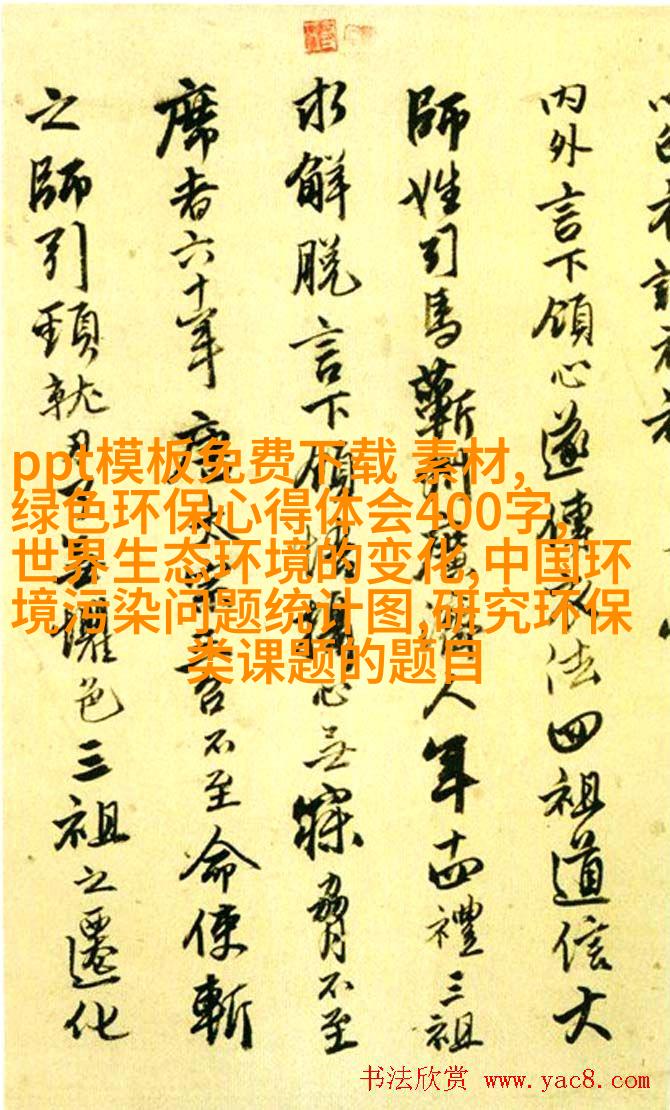 内外言下領心遂傳衣法四祖道信大
師姓司馬蘄州廣濟人年十四禮三祖
求解脫言下領悟攝心無寐脅不至
席者六十年唐太宗三召不至命使斬
之師引頸就刃了無懼色三祖之遷化
ppt模板免费下载 素材,
绿色环保心得体会400字,
世界生态环境的变化,中国环
境污染问题统计图,研究环保
类课题的题目
书法欣赏 www.yac8.com